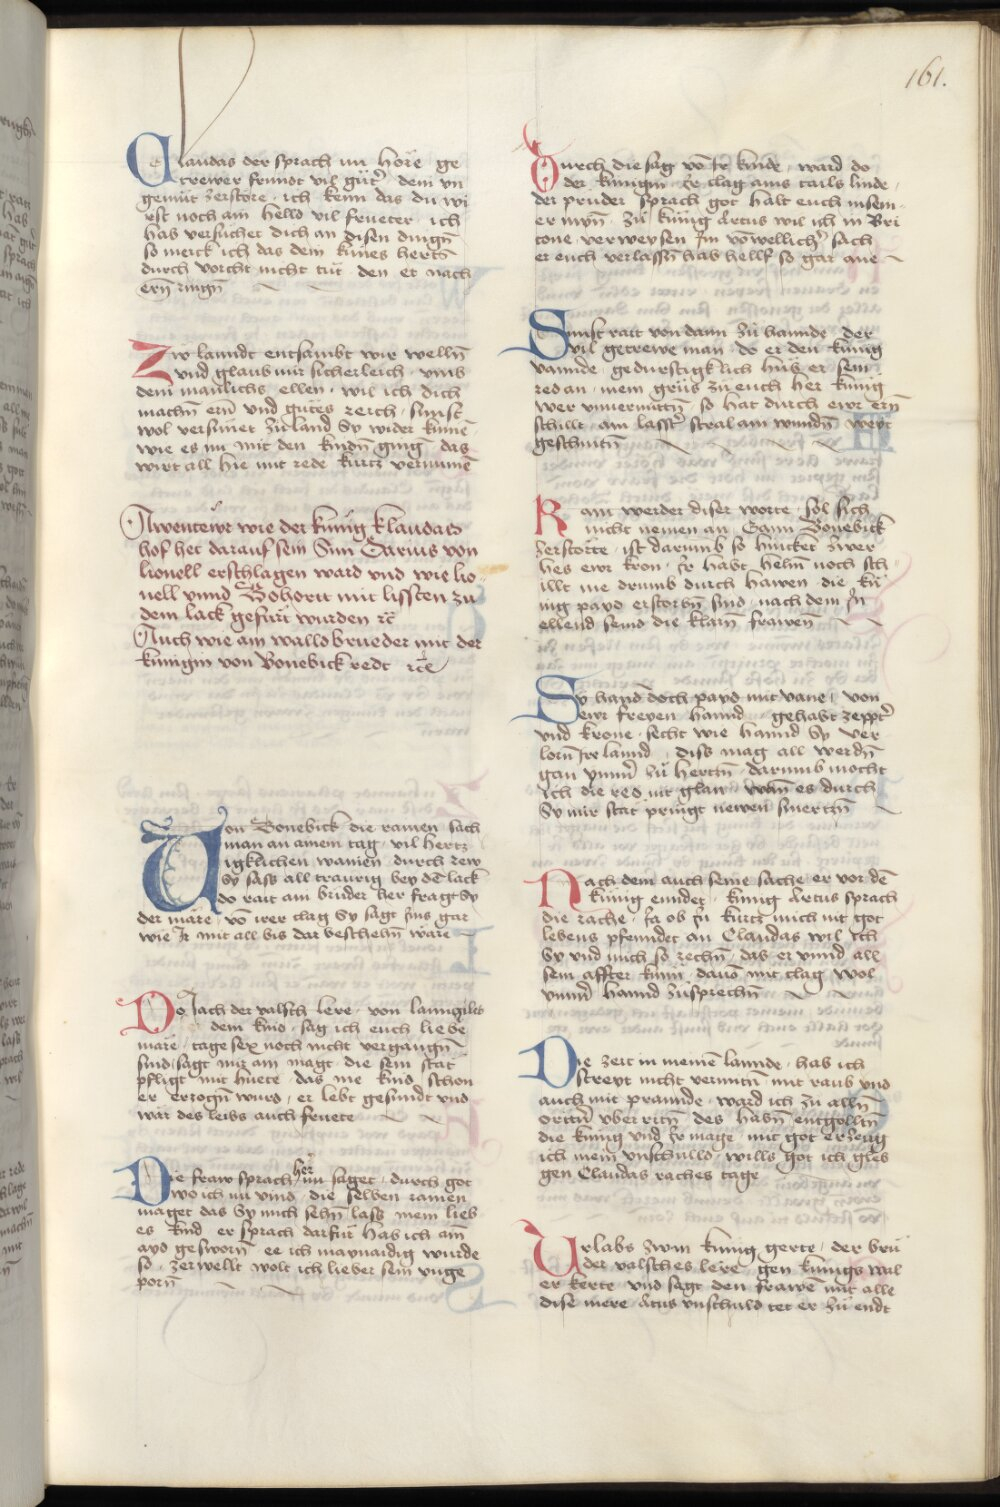 161.
Claudas der sprach nu höre ge
trewer frundt vil gůtʼ dem vn
gemüt zerstöre · ich kenn das du wi
rst noch ain helld vil frueter · ich
hab versuchet dich an disen dingn̄
so merck ich das dein künes hertz
durch vorcht nicht tüt · den er nach
ern̄ ringn̄
Zw lanndt entsambt wir welln̄
vnd glaub mir sicherleich · vmb
dein manlichs ellen · wil ich dich
machn̄ ern̄ vnd gůtes reich · sunst
wol versünet zu land Sy wider kümē
wie es nu mit den kindn̄ gieng das
wirt all hie mit rede kurtz vernumē
Awentewr wie der künig klaudas
hof het darauf sein Sun Darius von
lionell erschlagen ward vnd wie lio
nell vnnd Bohorit mit lissten zu
dem lack gefürt wurden ꝛc̄
Auch wie ain walldbrueder mit der
künigin von Bonebick redt ꝛc̄
Von Bonebick die rainen sach
man an ainem tag · vil hertz
igklichen wainen · durch rew
Sy sass all traurig bey dē lack
do rait ain brüder her fragt Sy
der märe · vō irer clag Sy sagt Jms gar
wie Jr mit all bis dar beschehn̄ wäre
Do Nach der valsch lere · von lannzilet
dem kind · sag ich euch liebe
märe · tage sex noch nicht vergangn̄
sind / sagt mir ain magt · die sein stät
pfligt mit hüete · das nie kind schon
er erzogn̄ wurd · er lebt gesundt vnd
wär des leibs auch fruete
Die fraw sprach her nu saget · durch got
wo ich nu vind · die selben rainen
maget das Sy mich sehn̄ lass mein lieb
es kind er sprach darfür hab ich ain
ayd gesworn̄ · ee ich maynaidig wurde
so · zerwellt wolt ich lieber sein vnge
porn̄
Durch die sag vō Jr kinde · ward do
der künigin Jr clag ains tails linde ·
der prüder sprach got hallt euch in sein
er mȳn̄ · zu künig Artus wil ich in Bri
tone · verweysen Jm vō wellichʼ sach
er euch verlassn̄ hab hellf so gar ane
Sunst rait von dann zü hannde der
vil getrewe man · do er den künig
vannde · gedurstigklich hüb er sein
red an · mein grüs zü euch her künig
wer vnvermittn̄ · so hat durch ewr ern̄
schillt · ain lasstʼ stral ain wundn̄ weyt
geschnitn̄
Kain werder diser worte · sol sich
nicht nemen an Gann Bonebick
zerstörte · ist darumb so hincket zwer
hes ewr kron · Jr habt helm noch sch
illt nie drumb durch hawen · die kü
nig payd erstorbn̄ sind · nach dem Jn
ellend seind die klarn̄ frawen̄
Sy hand doch payd mit vane · von
ewr freyen hannd · gehabt zepptʼ
vnd krone · secht wie hannd Sy ver
lorn̄ Jre lannd · diss mag all werdn̄
gan ymmʼ zü hertzn̄ · darumb mocht
ich die red nit glan wann es durch
Sy mir stät pringt newen smertzn̄
Nach dem auch seine sache er vor dē
künig enndet · künig Artus sprach
die rache · fa ob Jn kürtz mich nit got
lebens pfenndet an Claudas wil ich
Sy vnd mich so rechn̄ · das er vnnd all
sein affter künn · dauō mit clag wol
ymmʼ hannd zü sprechn̄
Die zeit in meinē lannde · hab ich
streyt nicht vermitn̄ · mit raub vnd
auch mit prannde · ward ich zu alln̄
ortn̄ vber ritn̄ · des habn̄ entgolltn̄
die künig vnd Jr mage · mit got erzeug
ich mein vnschulld · wills got ich gles
gen Claudas raches tage
Vrlabs zwm künig gerte · der brü
der valsches lere · gen künigs wal
er kerte · vnd sagt den frawē mit alle
dise mere Artus vnschuld tet er zü endt